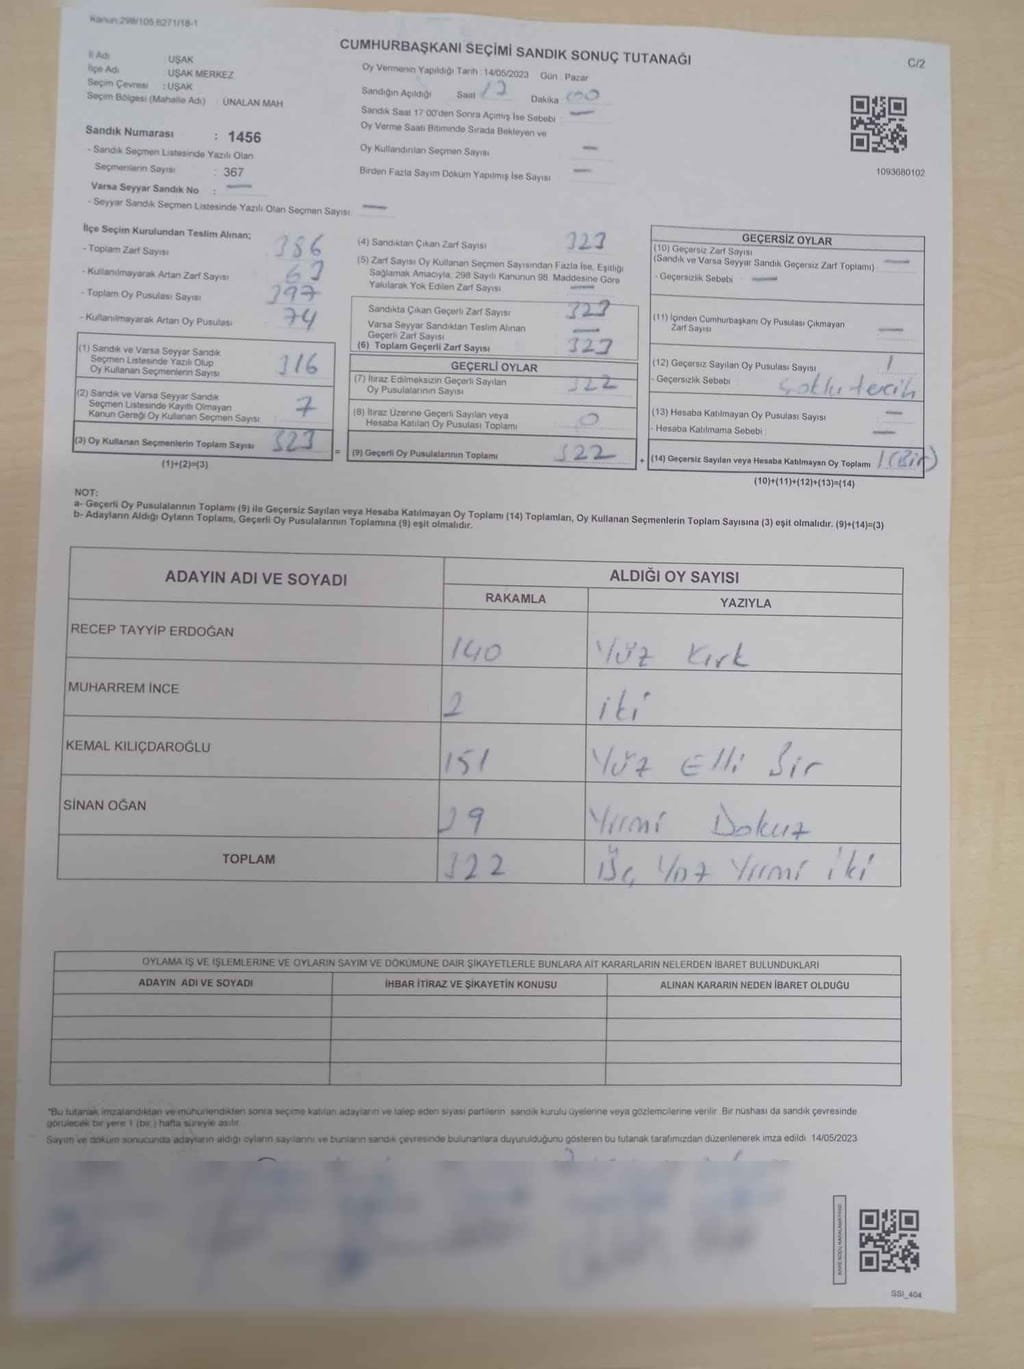 Kanun:298/105 6271/18-1
CUMHURBAŞKANI SEÇİMİ SANDIK SONUÇ TUTANAĞI
C/2
İl Adı : UŞAK
İlçe Adı : UŞAK MERKEZ
Seçim Çevresi : UŞAK
Seçim Bölgesi (Mahalle Adı) : ÜNALAN MAH
Sandık Numarası : 1456
- Sandık Seçmen Listesinde Yazılı Olan
Seçmenlerin Sayısı : 367
Varsa Seyyar Sandık No : —
- Seyyar Sandık Seçmen Listesinde Yazılı Olan Seçmen Sayısı : —
Oy Vermenin Yapıldığı Tarih : 14/05/2023 Gün : Pazar
Sandığın Açıldığı Saat Dakika
Sandık Saat 17:00'den Sonra Açımış İse Sebebi : —
Oy Verme Saati Bitiminde Sırada Bekleyen ve
Oy Kullandırılan Seçmen Sayısı —
Birden Fazla Sayım Döküm Yapılmış İse Sayısı —
1093680102
İlçe Seçim Kurulundan Teslim Alınan;
- Toplam Zarf Sayısı 386
- Kullanılmayarak Artan Zarf Sayısı 63
- Toplam Oy Pusulası Sayısı 397
- Kullanılmayarak Artan Oy Pusulası 74
(1) Sandık ve Varsa Seyyar Sandık
Seçmen Listesinde Yazılı Olup
Oy Kullanan Seçmenlerin Sayısı 316
(2) Sandık ve Varsa Seyyar Sandık
Seçmen Listesinde Kayıtlı Olmayan
Kanun Gereği Oy Kullanan Seçmen Sayısı 7
(3) Oy Kullanan Seçmenlerin Toplam Sayısı 323
(1)+(2)=(3)
(4) Sandıktan Çıkan Zarf Sayısı 323
(5) Zarf Sayısı Oy Kullanan Seçmen Sayısından Fazla İse, Eşitliği
Sağlamak Amacıyla, 298 Sayılı Kanunun 98. Maddesine Göre
Yakılarak Yok Edilen Zarf Sayısı —
Sandıkta Çıkan Geçerli Zarf Sayısı 323
Varsa Seyyar Sandıktan Teslim Alınan
Geçerli Zarf Sayısı —
(6) Toplam Geçerli Zarf Sayısı 323
GEÇERLİ OYLAR
(7) İtiraz Edilmeksizin Geçerli Sayılan
Oy Pusulalarının Sayısı 322
(8) İtiraz Üzerine Geçerli Sayılan veya
Hesaba Katılan Oy Pusulası Toplamı 0
= (9) Geçerli Oy Pusulalarının Toplamı 322
GEÇERSİZ OYLAR
(10) Geçersiz Zarf Sayısı
(Sandık ve Varsa Seyyar Sandık Geçersiz Zarf Toplamı) —
- Geçersizlik Sebebi : —
(11) İçinden Cumhurbaşkanı Oy Pusulası Çıkmayan
Zarf Sayısı —
(12) Geçersiz Sayılan Oy Pusulası Sayısı 1
- Geçersizlik Sebebi : Çoklu tercih
(13) Hesaba Katılmayan Oy Pusulası Sayısı —
- Hesaba Katılmama Sebebi : —
+ (14) Geçersiz Sayılan veya Hesaba Katılmayan Oy Toplamı 1 (Bir)
(10)+(11)+(12)+(13)=(14)
NOT:
a- Geçerli Oy Pusulalarının Toplamı (9) ile Geçersiz Sayılan veya Hesaba Katılmayan Oy Toplamı (14) Toplamları, Oy Kullanan Seçmenlerin Toplam Sayısına (3) eşit olmalıdır. (9)+(14)=(3)
b- Adayların Aldığı Oyların Toplamı, Geçerli Oy Pusulalarının Toplamına (9) eşit olmalıdır.
ADAYIN ADI VE SOYADI
ALDIĞI OY SAYISI
RAKAMLA YAZIYLA
RECEP TAYYİP ERDOĞAN 140 Yüz Kırk
MUHARREM İNCE 2 iki
KEMAL KILIÇDAROĞLU 151 Yüz Elli Bir
SİNAN OĞAN 29 Yirmi Dokuz
TOPLAM 322 Üç Yüz Yirmi iki
OYLAMA İŞ VE İŞLEMLERİNE VE OYLARIN SAYIM VE DÖKÜMÜNE DAİR ŞİKAYETLERLE BUNLARA AİT KARARLARIN NELERDEN İBARET BULUNDUKLARI
ADAYIN ADI VE SOYADI İHBAR İTİRAZ VE ŞİKAYETİN KONUSU ALINAN KARARIN NEDEN İBARET OLDUĞU
*Bu tutanak imzalandıktan ve mühürlendikten sonra seçime katılan adayların ve talep eden siyasi partilerin sandık kurulu üyelerine veya gözlemcilerine verilir. Bir nüshası da sandık çevresinde
görülecek bir yere 1 (bir ) hafta süreyle asılır.
Sayım ve döküm sonucunda adayların aldığı oyların sayılarını ve bunların sandık çevresinde bulunanlara duyurulduğunu gösteren bu tutanak tarafımızdan düzenlenerek imza edildi. 14/05/2023
SSI_404